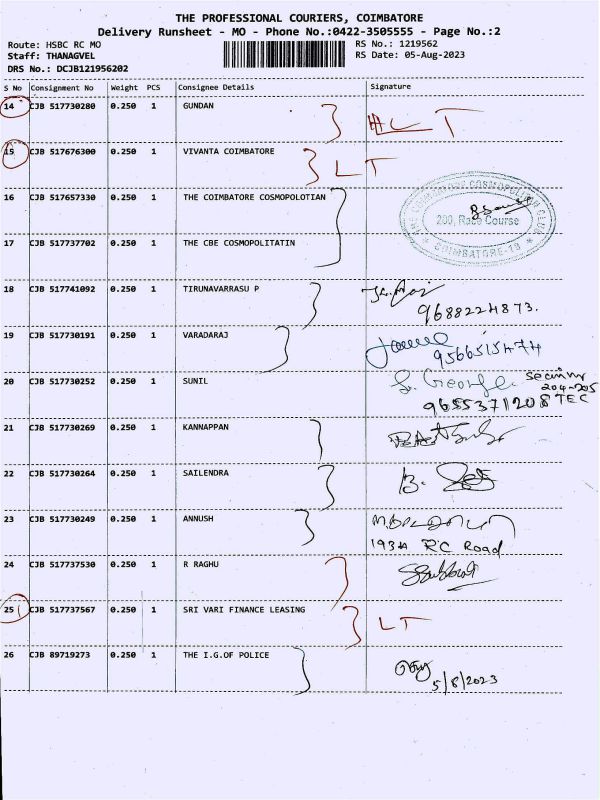 THE PROFESSIONAL COURIERS, COIMBATORE
Delivery Runsheet - MO - Phone No.:0422-3505555 - Page No.:2
Route: HSBC RC MO
RS No.: 1219562
Staff: THANAGVEL
RS Date: 05-Aug-2023
DRS No.: DCJB121956202
S No Consignment No Weight PCS Consignee Details Signature
14 CJB 517730280 0.250 1 GUNDAN LT
15 CJB 517676300 0.250 1 VIVANTA COIMBATORE LT
16 CJB 517657330 0.250 1 THE COIMBATORE COSMOPOLOTIAN
THE COIMBATORE COSMOPOLITAN CLUB
200, Race Course
COIMBATORE-18
17 CJB 517737702 0.250 1 THE CBE COSMOPOLITATIN
18 CJB 517741092 0.250 1 TIRUNAVARRASU P
9688224873.
19 CJB 517730191 0.250 1 VARADARAJ
9566515474
20 CJB 517730252 0.250 1 SUNIL
S. George
204-205
9655371208 TEC
21 CJB 517730269 0.250 1 KANNAPPAN
22 CJB 517730264 0.250 1 SAILENDRA
23 CJB 517730249 0.250 1 ANNUSH
193A RC Road
24 CJB 517737530 0.250 1 R RAGHU
25 CJB 517737567 0.250 1 SRI VARI FINANCE LEASING LT
26 CJB 89719273 0.250 1 THE I.G.OF POLICE
5/8/2023